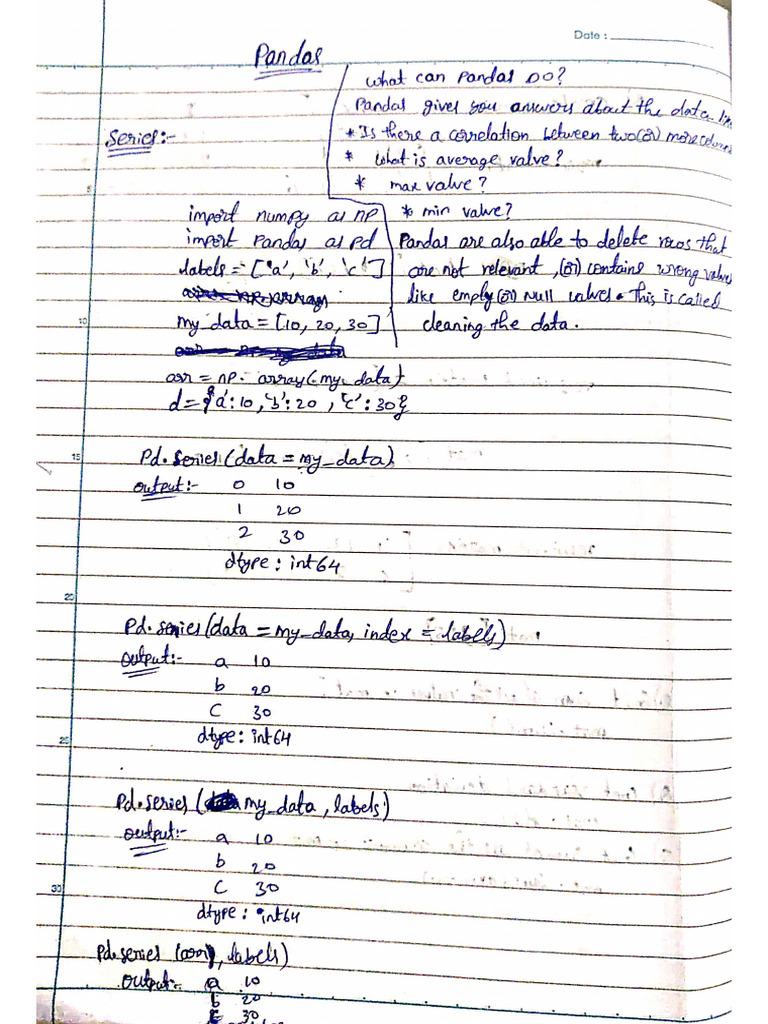 Date :
Pandas
What can Pandas DO?
Pandas gives you answers about the data. lik
* Is there a correlation between two (or) more colum
* What is average valve?
* max valve?
* min valve?
Pandas are also able to delete rows that
are not relevant, (or) contains wrong values
like empty (or) null valves. This is called
cleaning the data.
Series:-
import numpy as np
import Pandas as pd
labels = ['a', 'b', 'c']
my_data = [10, 20, 30]
arr = np.array(my_data)
d = {'a':10, 'b':20, 'c':30}
Pd.Series(data = my_data)
output:- 0 10
1 20
2 30
dtype: int64
Pd.series(data = my_data, index = labels)
output:- a 10
b 20
C 30
dtype: int64
Pd.series (my_data, labels)
output:- a 10
b 20
C 30
dtype: int64
Pd.series (arr, labels)
output:- a 10
b 20
30
5
10
15
20
25
30